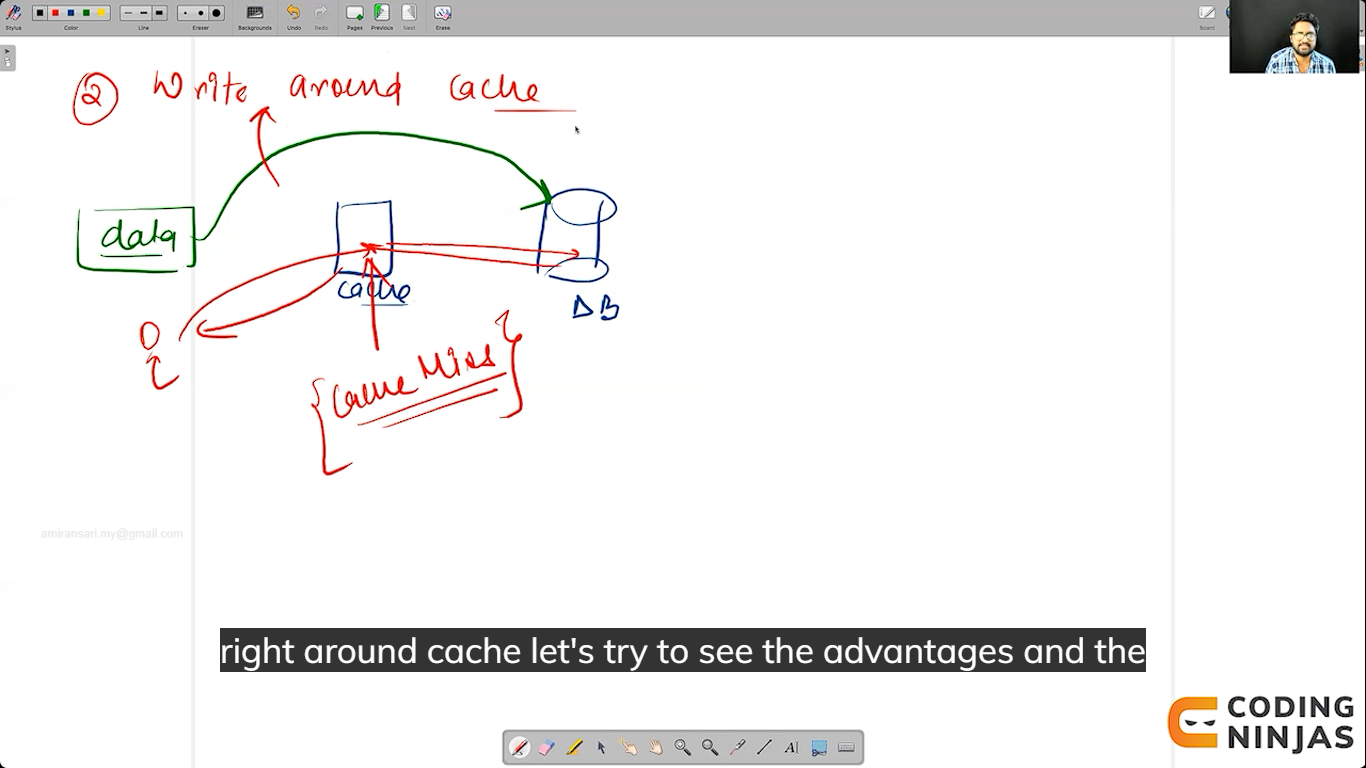 Stylus
Color
Line
Eraser
Backgrounds
Undo
Redo
Pages
Previous
Next
Erase
② Write around cache
data
cache
DB
{Cache Miss}
amiransari.my@gmail.com
right around cache let's try to see the advantages and the
CODING
NINJAS